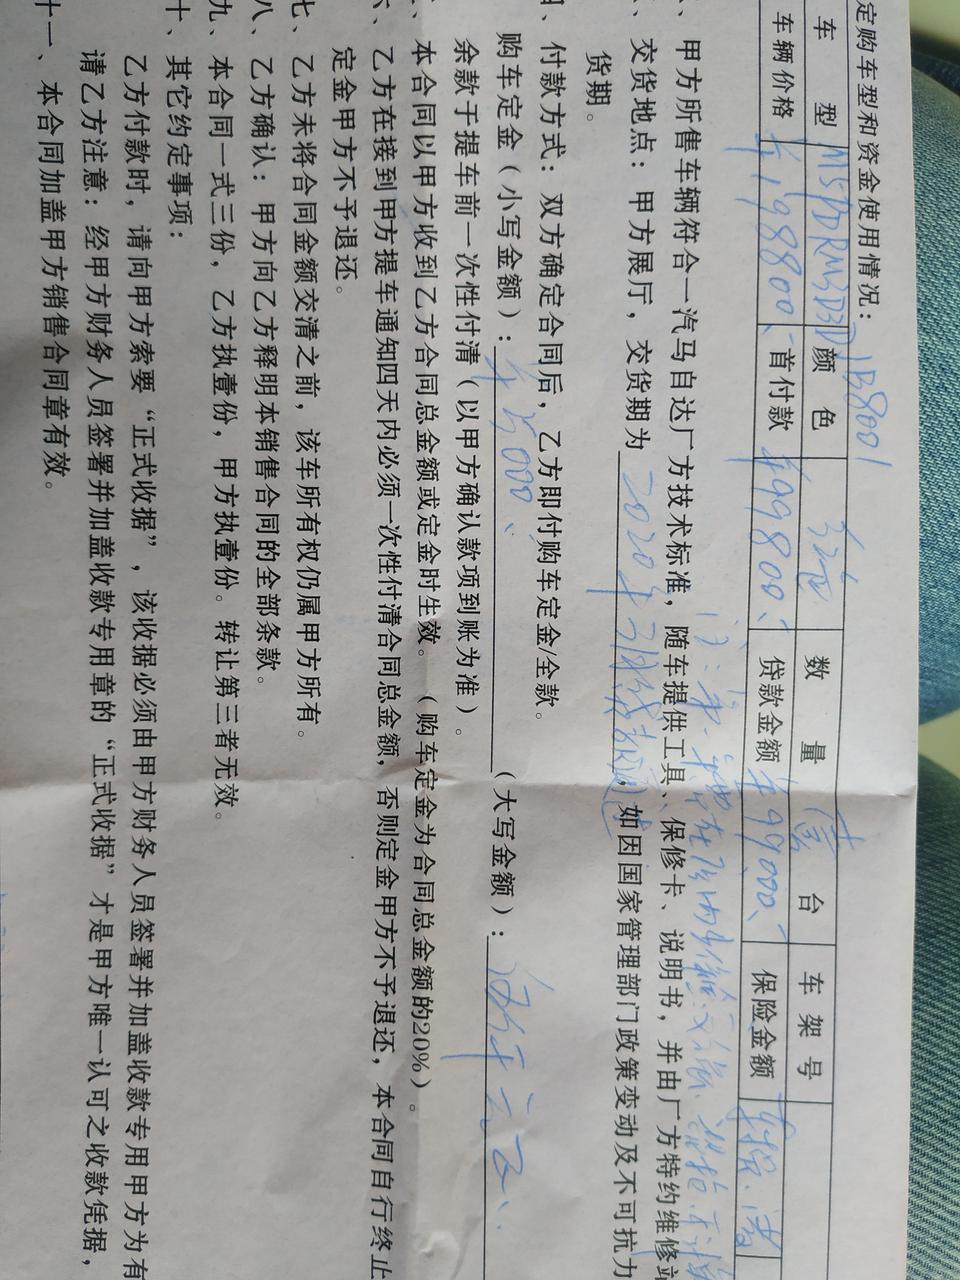 定购车型和资金使用情况：
车 型 颜 色 数 量 台 车 架 号
车辆价格 ¥198800、 首付款 ¥99800、 贷款金额 ¥99000、 保险金额
、甲方所售车辆符合一汽马自达厂方技术标准，随车提供工具、保修卡、说明书，并由厂方特约维修站
、交货地点：甲方展厅，交货期为 2020年 ，如因国家管理部门政策变动及不可抗力
货期。
、付款方式：双方确定合同后，乙方即付购车定金/全款。
购车定金（小写金额）：¥5000、（大写金额）：伍仟元正、
余款于提车前一次性付清（以甲方确认款项到账为准）。
、本合同以甲方收到乙方合同总金额或定金时生效。（购车定金为合同总金额的20%）。
、乙方在接到甲方提车通知四天内必须一次性付清合同总金额，否则定金甲方不予退还，本合同自行终止
定金甲方不予退还。
七、乙方未将合同金额交清之前，该车所有权仍属甲方所有。
八、乙方确认：甲方向乙方释明本销售合同的全部条款。
九、本合同一式三份，乙方执壹份，甲方执壹份。转让第三者无效。
十、其它约定事项：
乙方付款时，请向甲方索要“正式收据”，该收据必须由甲方财务人员签署并加盖收款专用甲方为有
请乙方注意：经甲方财务人员签署并加盖收款专用章的“正式收据”才是甲方唯一认可之收款凭据，
十一、本合同加盖甲方销售合同章有效。